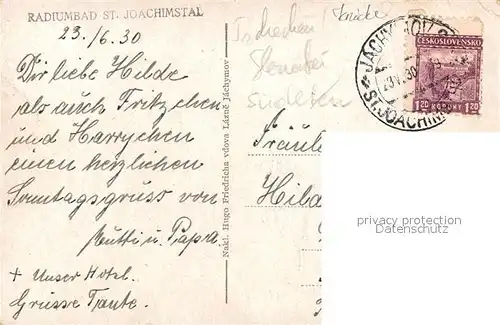 RADIUMBAD ST. JOACHIMSTAL
23./6.30
Dir liebe Hilde
als auch Fritzchen
und Harrychen
einen herzlichen
Sonntagsgruss von
Mutti u. Papa.
+ Unser Hotel.
Grüsse Tante.
Nakl. Hugo Friedricha vdova Lázně Jáchymov
Tschechen
Slovakei
Sudeten
Fräule
Hilda
JÁCHYMOV
ST. JOACHIM
30
ČESKOSLOVENSKO
1.20 KORUNY 1.20
privacy protection
www.oldthing.de